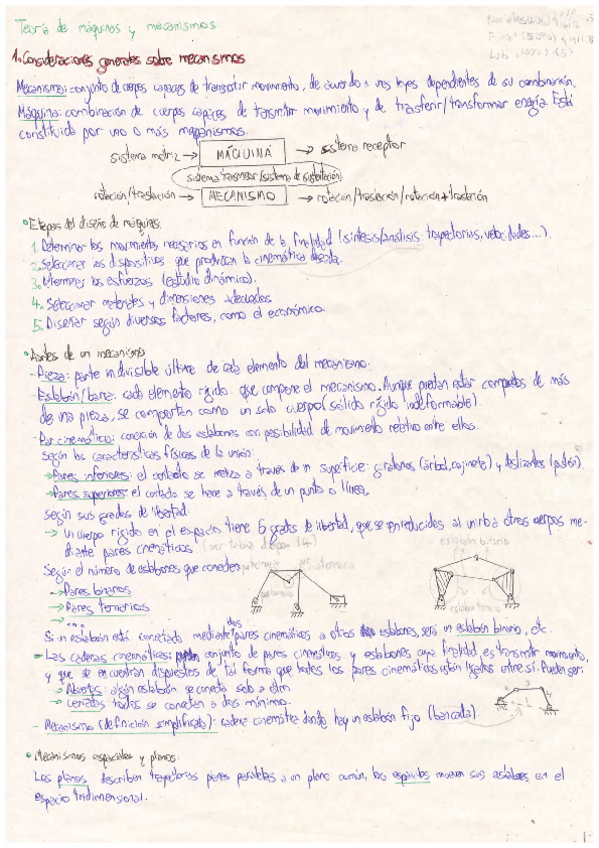 Teoría de máquinas y mecanismos
1. Consideraciones generales sobre mecanismos
Mecanismo: conjunto de cuerpos capaces de transmitir movimiento, de acuerdo a unas leyes dependientes de su combinación.
Máquina: combinación de cuerpos capaces de transmitir movimiento y de trasferir/transformar energía. Está
constituida por uno o más mecanismos.
sistema motriz → MÁQUINA → sistema receptor
sistema transmisor/sistema de sustentación
rotación/traslación → MECANISMO → rotación/traslación/rotación+traslación
• Etapas del diseño de máquinas:
1. Determinar los movimientos necesarios en función de la finalidad (síntesis/análisis trayectorias, velocidades...).
2. Seleccionar los dispositivos que produzcan la cinemática deseada.
3. Determinar los esfuerzos (estudio dinámico).
4. Seleccionar materiales y dimensiones adecuados
5. Diseñar según diversos factores, como el económico.
• Partes de un mecanismo
- Pieza: parte indivisible última de cada elemento del mecanismo.
- Eslabón/barra: cada elemento rígido que compone el mecanismo. Aunque puedan estar compuestos de más
de una pieza, se comportan como un solo cuerpo (sólido rígido indeformable)
- Par cinemático: conexión de dos eslabones con posibilidad de movimiento relativo entre ellos.
Según las características físicas de la unión:
→ Pares inferiores: el contacto se realiza a través de una superficie: giratorios (árbol, cojinete) y deslizantes (pistón).
→ Pares superiores: el contacto se hace a través de un punto o línea.
Según sus grados de libertad:
→ Un cuerpo rígido en el espacio tiene 6 grados de libertad, que se ven reducidos al unirlo a otros cuerpos me-
diante pares cinemáticos.
Según el número de eslabones que conecten
→ Pares binarios
→ Pares ternarios
→ ...
Si un eslabón está conectado mediante dos pares cinemáticos a otros eslabones, será un eslabón binario, etc.
- Las cadenas cinemáticas: conjunto de pares cinemáticos y eslabones cuya finalidad es transmitir movimiento,
y que se encuentran dispuestos de tal forma que todos los pares cinemáticos están ligados entre sí. Pueden ser:
→ Abiertas: algún eslabón se conecta solo a otro
→ Cerradas: todos se conectan a dos mínimo.
- Mecanismo (definición simplificada): cadena cinemática donde hay un eslabón fijo (bancada).
• Mecanismos espaciales y planos:
Los planos describen trayectorias planas paralelas a un plano común, los espaciales mueven sus eslabones en el
espacio tridimensional.